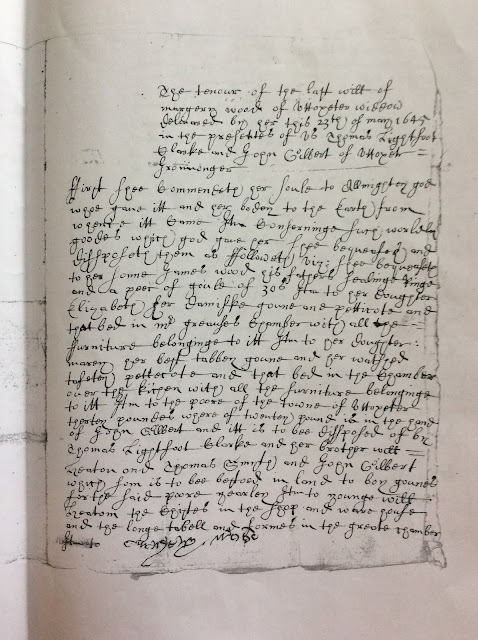 The tenour of the last will of
margery wood of Uttoxeter widdow
delivered by her this 23th of may 1645
in the presentes of Us Thomas Lightfoot
Clarke and John Gilbert of Uttoxet =
Ironmonger
ffirst shee Commendeth her soule to Allmighty god
whoe gave itt and her boden to the Earth from
whence itt Came Itm Conserninge such worldly
goodes which god gave her shee bequeathes and
disposeth them as ffolloweth viz: shee bequeath
to her sonne James wood his fathers sealinge Ringe
and a peec of goule of 30s Itm to her doughter
Elizabeth her Damiske goune and petticote and
that bed in mr greauses Chamber with all the =
furniture belonginge to itt Itm to her doughter:
marey her best tabbey goune and her watched
tafetey pettecote and that bed in the Chamber
over the kitchen with all the furniture belonginge
to itt Itm to the poore of the towne of Uttoxeter
therty poundes where of twentey pound is in the hand
of John Gilbert and itt is to bee disposed of by
Thomas Lightfoot Clarke and her brother will =
Heaton and Thomas Smyth and John Gilbert
which som is to bee bestoed in land to bey gounes
for the said poore yearley Itm to younge will
Heatom the Chistes in the shop and ware house
and the longe tabell and formes in the greate Chamber
Itm to